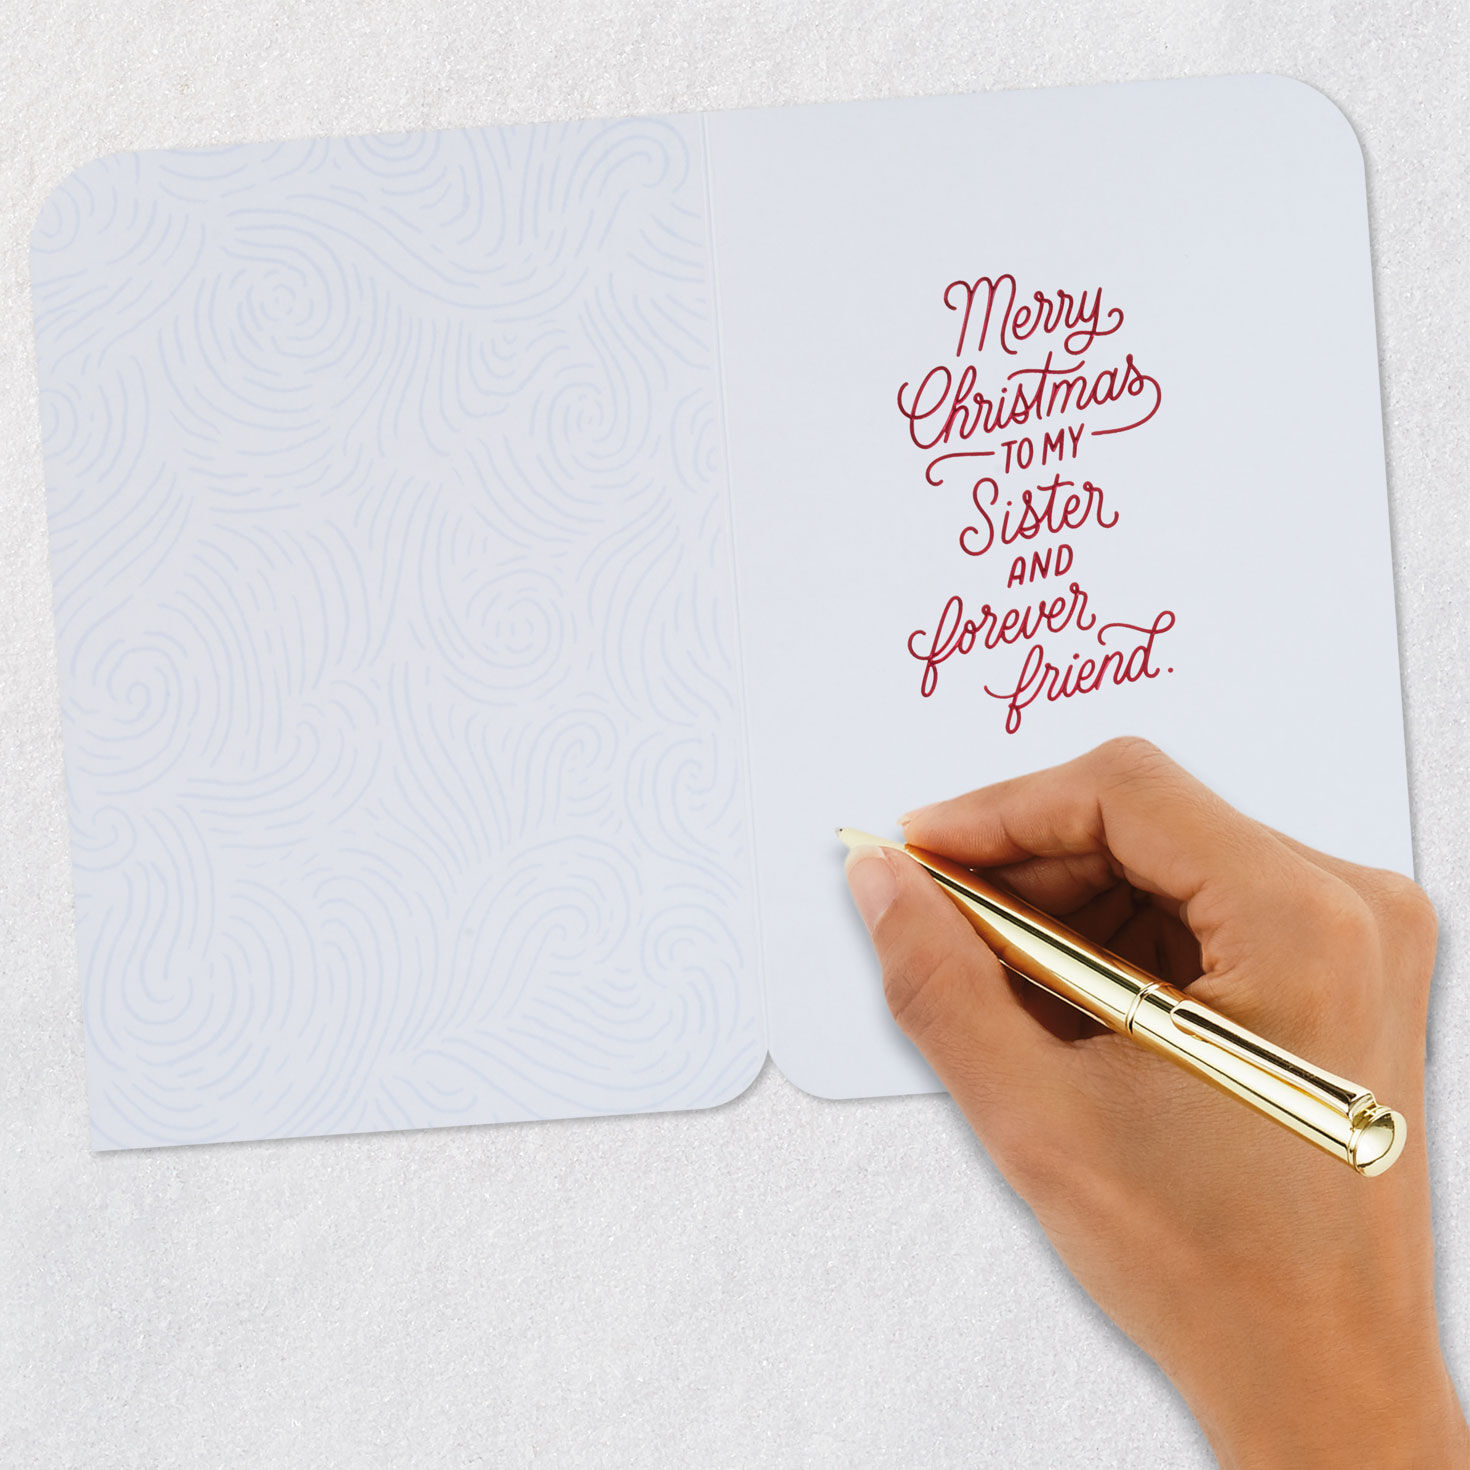 Merry
Christmas
TO MY
Sister
AND
forever
friend.